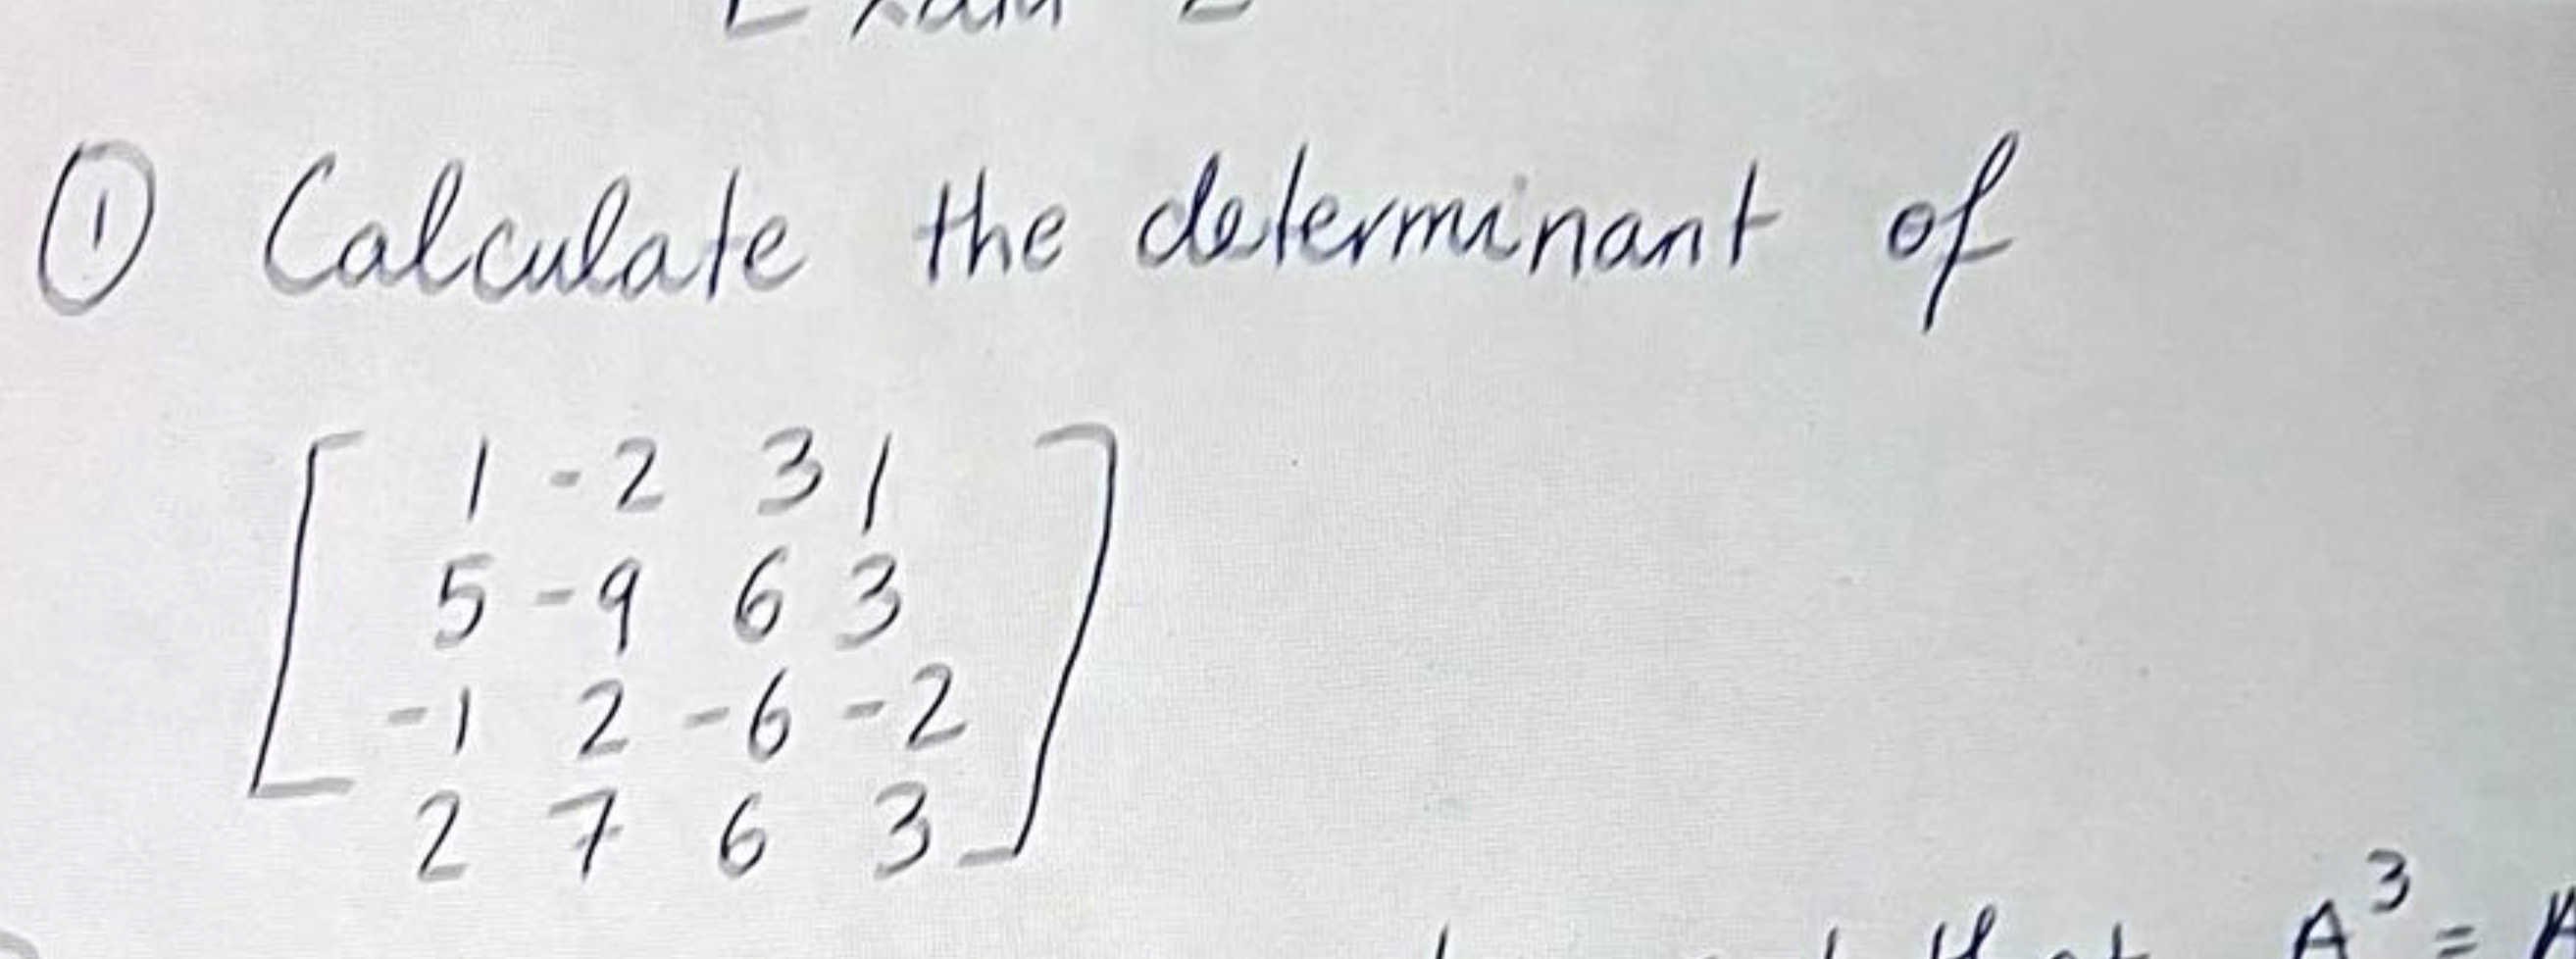 Exam 2
① Calculate the determinant of
1 -2 3 1
5 -9 6 3
-1 2 -6 -2
2 7 6 3
that A³ =